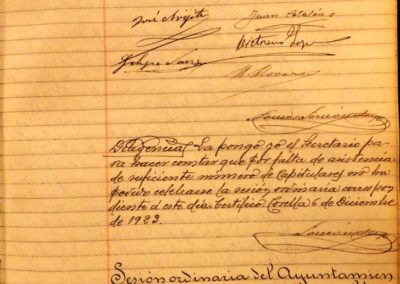 José Arjita Juan Catalán
Victorino
Felipe Sanz
M. Moreno
Diligencia: La pongo yo el Secretario pa-
ra hacer constar que por falta de asistencia
de suficiente número de Capitulares no ha
podido celebrarse la sesión ordinaria corres pon
diente á este día. Certifico. Corella 6 de Diciembre
de 1923.
Sesión ordinaria del Ayuntamien